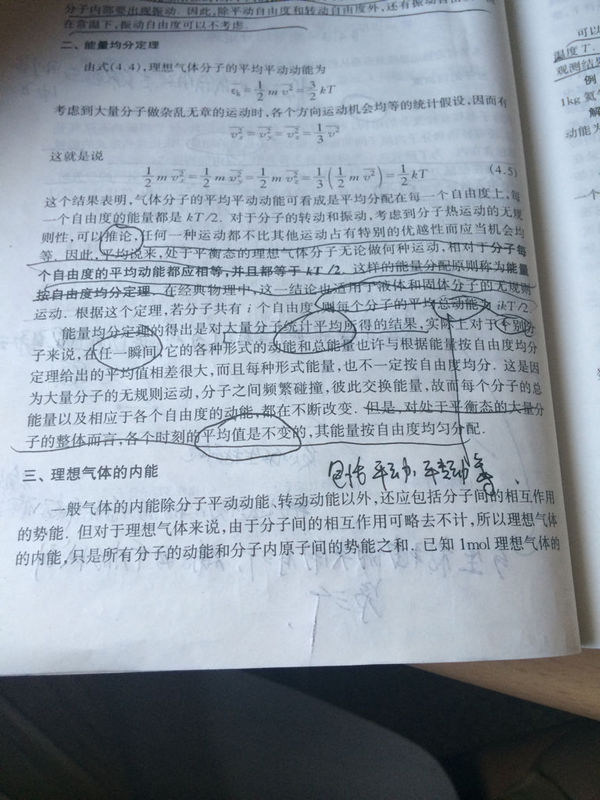 分子内部要出现振动. 因此, 除平动自由度和转动自由度外, 还有振动自由
在常温下, 振动自由度可以不考虑.
二、能量均分定理
由式(4.4), 理想气体分子的平均平动动能为
ε̄ₖ = 1/2 m v̄² = 3/2 kT
考虑到大量分子做杂乱无章的运动时, 各个方向运动机会均等的统计假设, 因而有
v̄ₓ² = v̄ᵧ² = v̄_z² = 1/3 v̄²
这就是说
1/2 m v̄ₓ² = 1/2 m v̄ᵧ² = 1/2 m v̄_z² = 1/3 (1/2 m v̄²) = 1/2 kT (4.5)
这个结果表明, 气体分子的平均平动动能可看成是平均分配在每一个自由度上, 每
一个自由度的能量都是 kT/2. 对于分子的转动和振动, 考虑到分子热运动的无规
则性, 可以推论, 任何一种运动都不比其他运动占有特别的优越性而应当机会均
等. 因此, 平均说来, 处于平衡态的理想气体分子无论做何种运动, 相对于分子每
个自由度的平均动能都应相等, 并且都等于 kT/2. 这样的能量分配原则称为能量
按自由度均分定理. 在经典物理中, 这一结论也适用于液体和固体分子的无规则
运动. 根据这个定理, 若分子共有 i 个自由度, 则每个分子的平均总动能为 ikT/2.
能量均分定理的得出是对大量分子统计平均所得的结果, 实际上对于个别分
子来说, 在任一瞬间, 它的各种形式的动能和总能量也许与根据能量按自由度均分
定理给出的平均值相差很大, 而且每种形式能量, 也不一定按自由度均分. 这是因
为大量分子的无规则运动, 分子之间频繁碰撞, 彼此交换能量, 故而每个分子的总
能量以及相应于各个自由度的动能, 都在不断改变. 但是, 对处于平衡态的大量分
子的整体而言, 各个时刻的平均值是不变的, 其能量按自由度均匀分配.
包括平动、
三、理想气体的内能
一般气体的内能除分子平动动能、转动动能以外, 还应包括分子间的相互作用
的势能. 但对于理想气体来说, 由于分子间的相互作用可略去不计, 所以理想气体
的内能, 只是所有分子的动能和分子内原子间的势能之和. 已知 1mol 理想气体的
可以
温度 T.
观测结果
例
1kg 氦气
解
动能为
一个